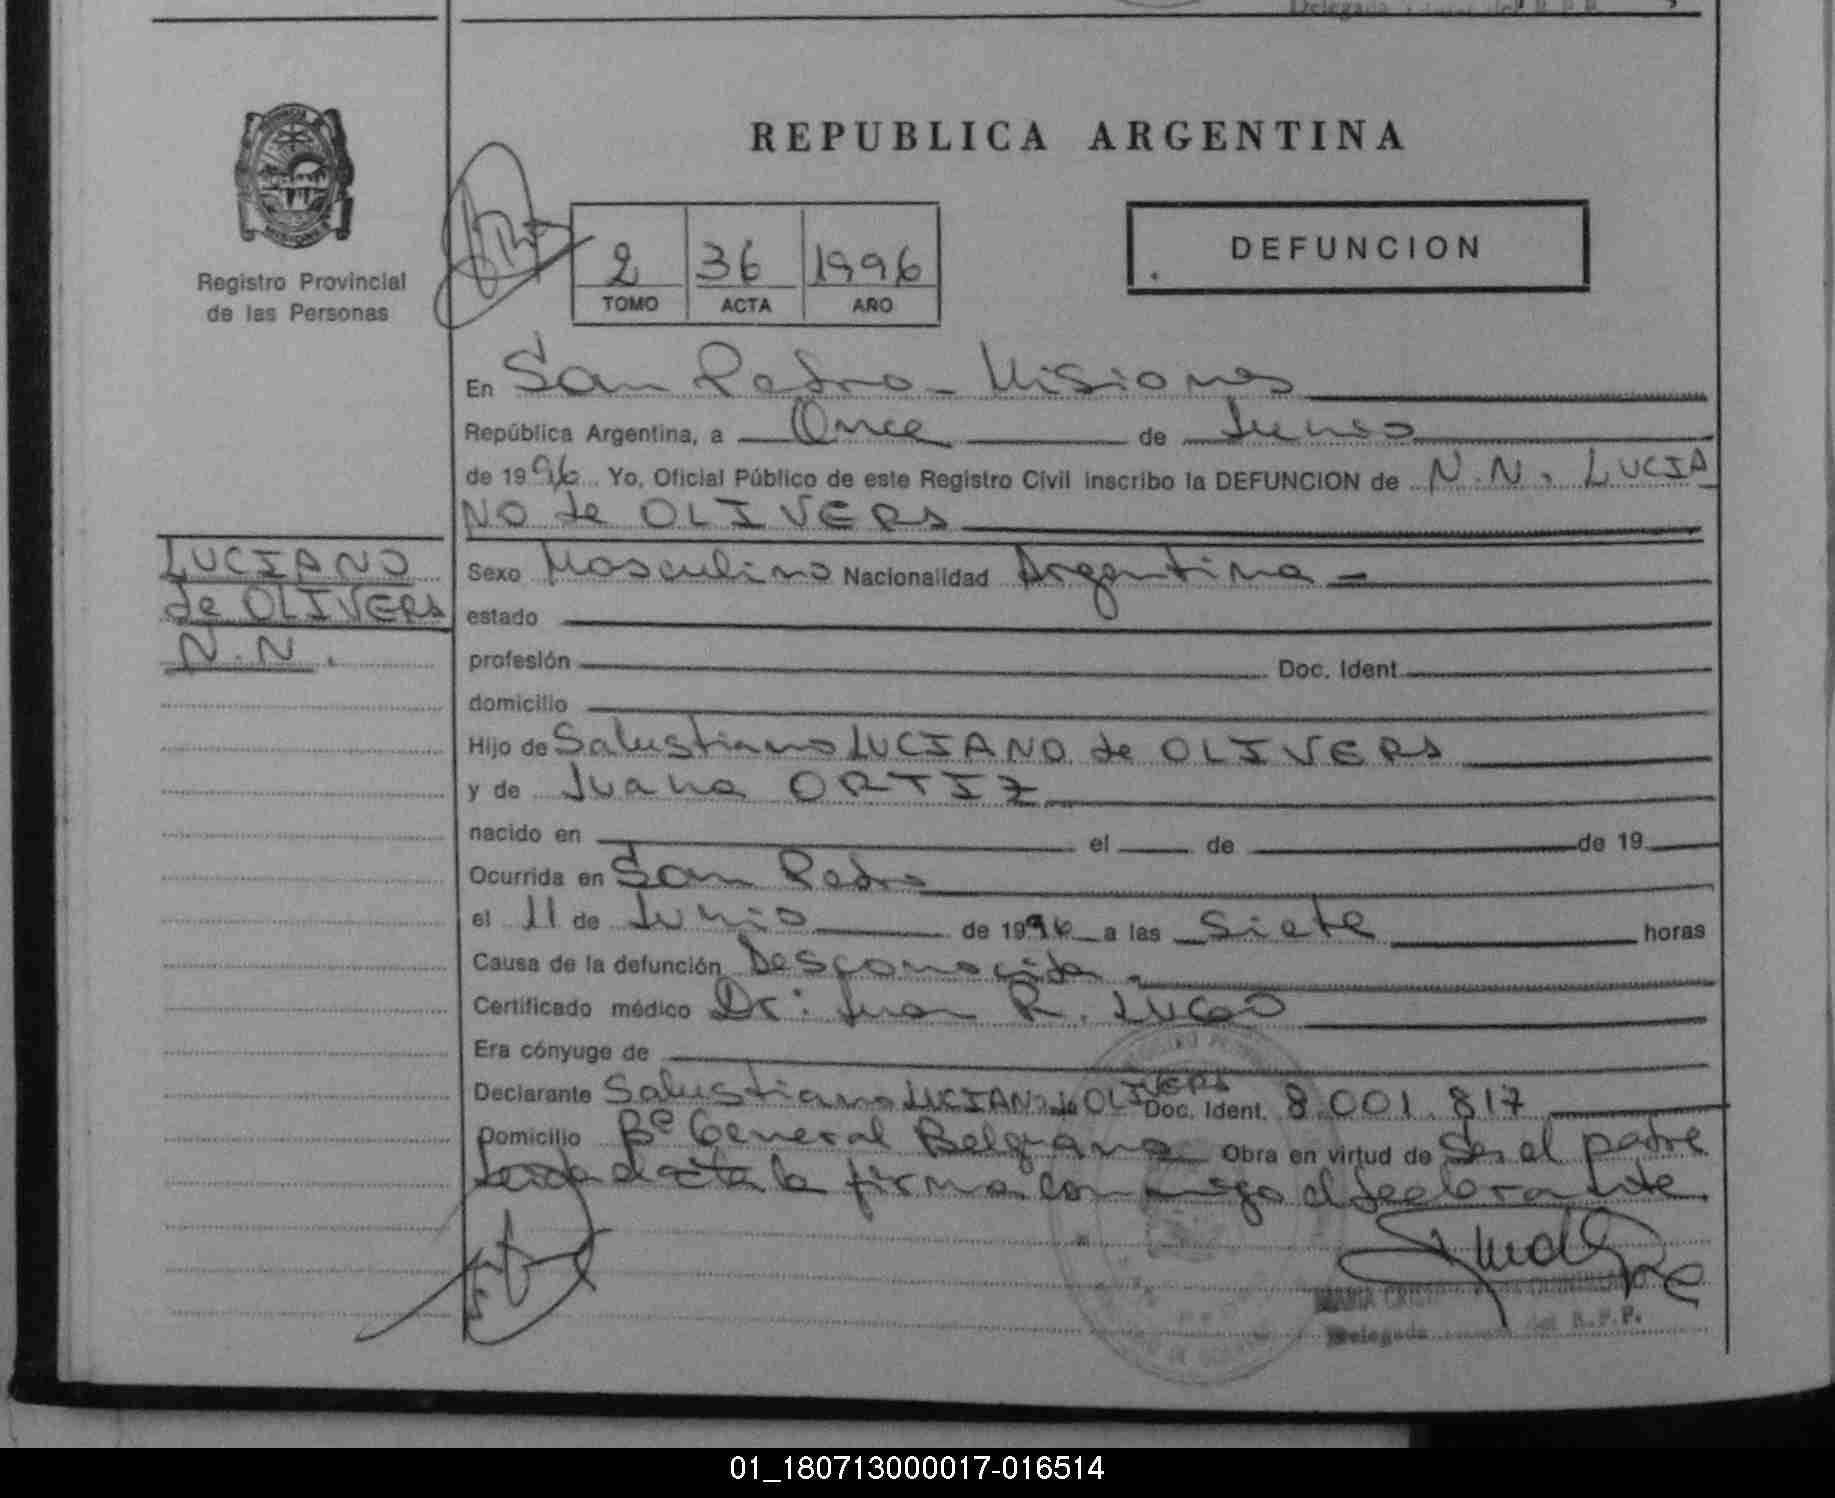 Delegada
REPUBLICA ARGENTINA
MISIONES
Registro Provincial
de las Personas
2 36 1996
TOMO ACTA AÑO
DEFUNCION
En San Pedro - Misiones
República Argentina, a Once de Junio
de 1996 Yo, Oficial Público de este Registro Civil inscribo la DEFUNCION de N.N. LUCIA
NO de OLIVERA
LUCIANO
de OLIVERA
N.N.
Sexo Masculino Nacionalidad Argentina -
estado
profesión Doc. Ident.
domicilio
Hijo de Salustiano LUCIANO de OLIVERA
y de Juana ORTIZ
nacido en el de de 19
Ocurrida en San Pedro
el 11 de Junio de 1996 a las Siete horas
Causa de la defunción Desconocida -
Certificado médico Dr: Juan R. LUGO
Era cónyuge de
Declarante Salustiano LUCIANO de OLIVERA Doc. Ident. 8.001.817
Domicilio Bº General Belgrano Obra en virtud de Ser el padre
Leida el acta la firma conmigo el declarante.
MARIA
Delegada del R.P.P.
01_180713000017-016514